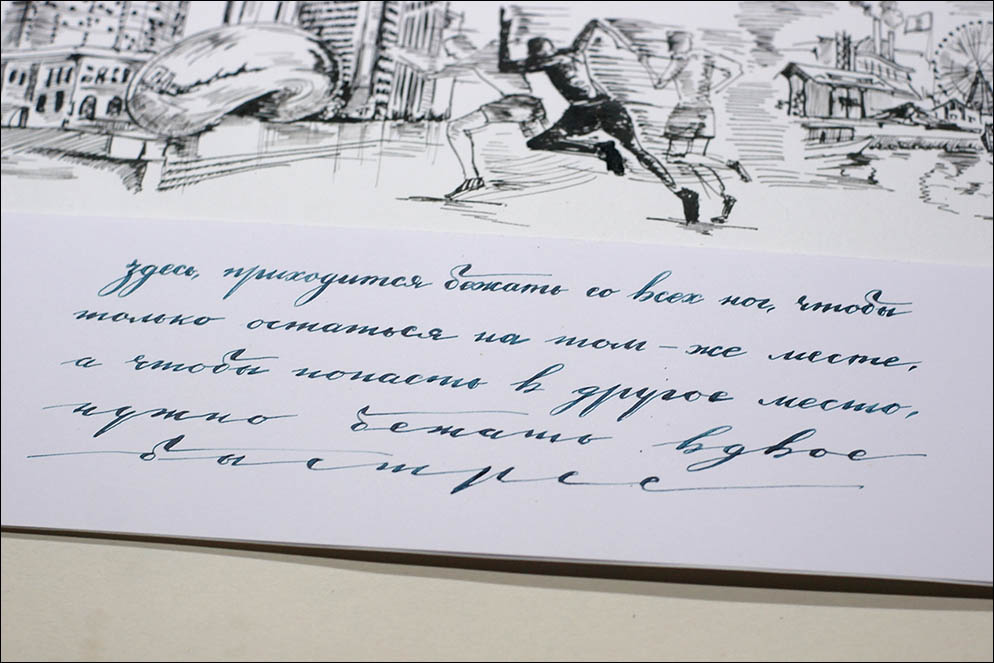 здесь, приходится бежать со всех ног, чтобы
только остаться на том – же месте,
а чтобы попасть в другое место,
нужно бежать вдвое
быстрее